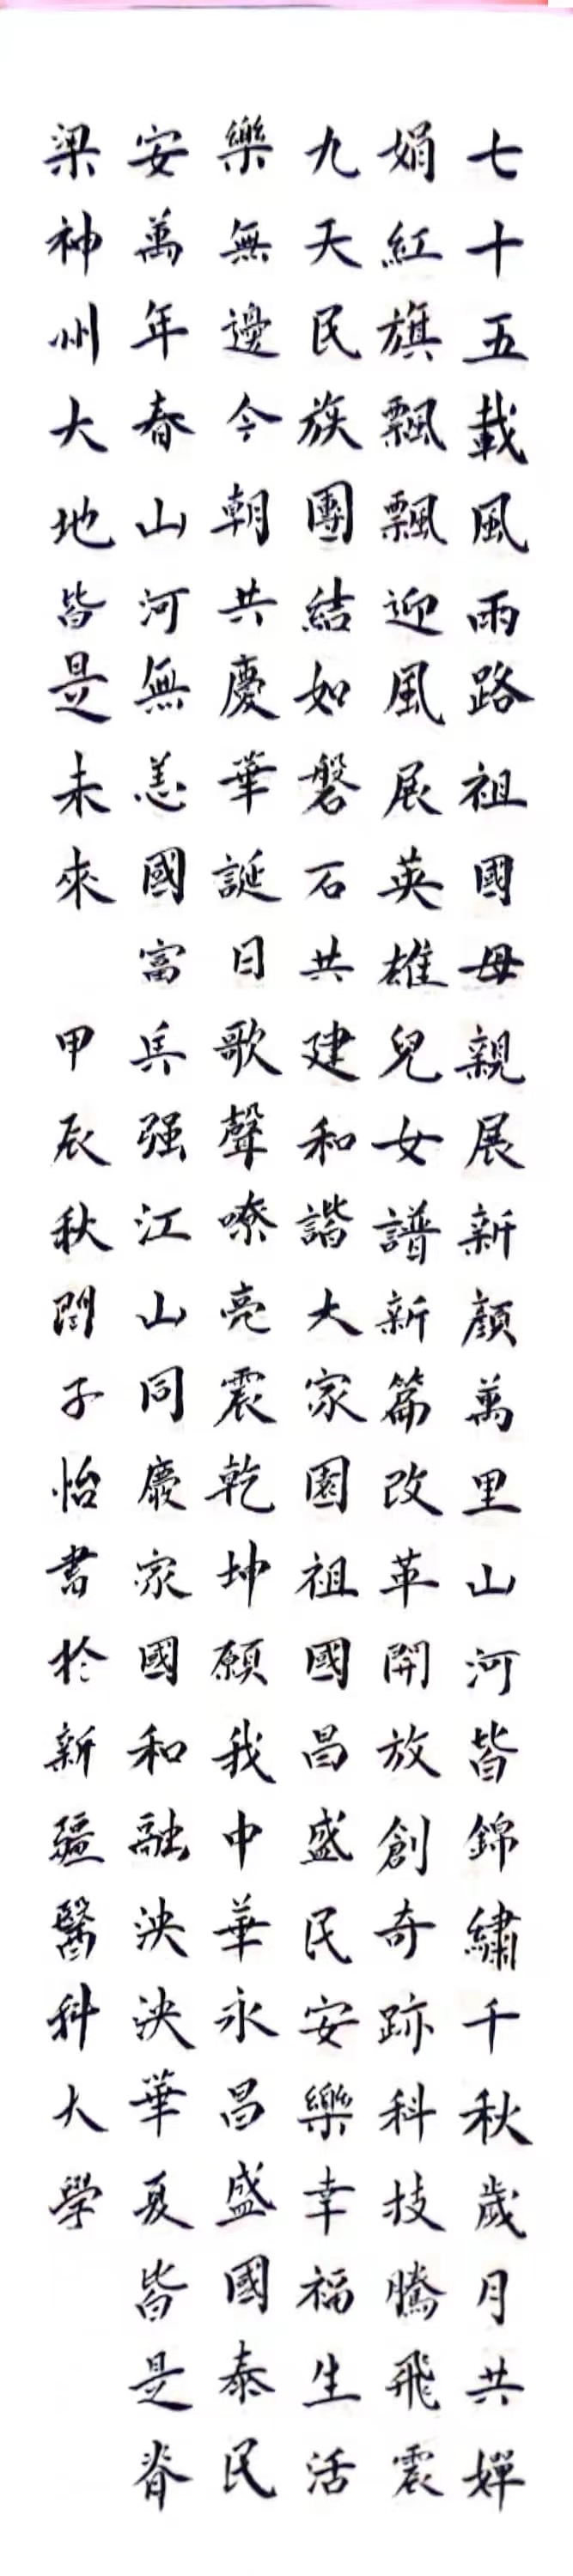 七十五載風雨路祖國母親展新顏萬里山河皆錦繡千秋歲月共嬋
娟紅旗飄飄迎風展英雄兒女譜新篇改革開放創奇跡科技騰飛震
九天民族團結如磐石共建和諧大家園祖國昌盛民安樂幸福生活
樂無邊今朝共慶華誕日歌聲嘹亮震乾坤願我中華永昌盛國泰民
安萬年春山河無恙國富兵强江山同慶家國和融泱泱華夏皆是脊
梁神州大地皆是未來 甲辰秋閆子怡書於新疆醫科大學